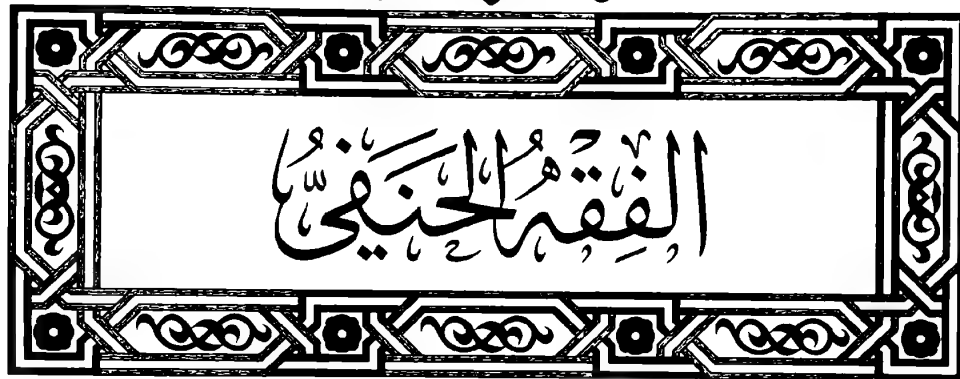 الفِقْهُ الحَنَفِيُّ